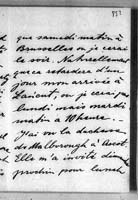 que samedi matin à
Bruxelles où je serai
le soir. Naturellement
que ça retardera d'un
jour mon arrivée à
où je serai pas
lundi mais mardi
matin à 10 heures.
J'ai vu la duchesse
de Marlborough à Ascot
Elle m'a invité
prochain pour lunch